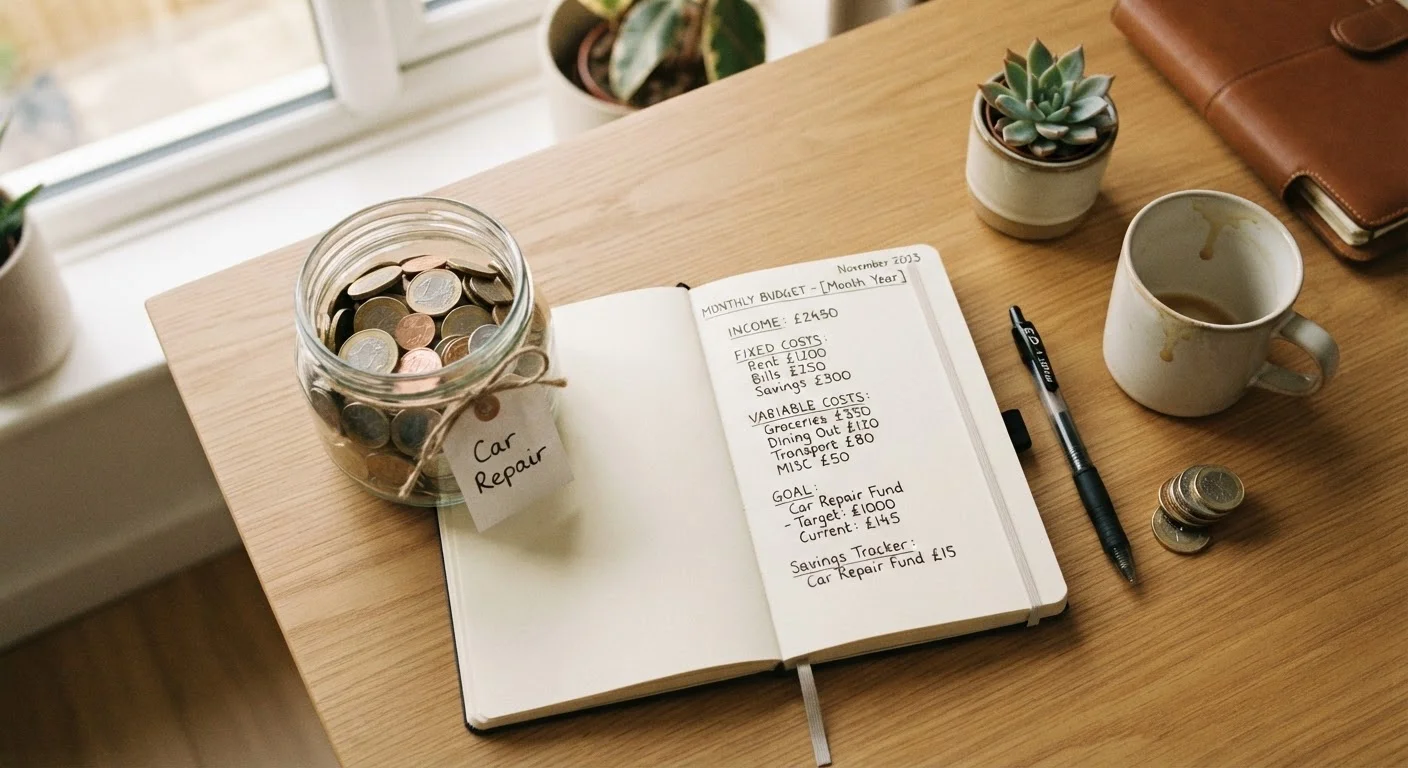 Car
Repair
November 2023
MONTHLY BUDGET - [Month Year]
INCOME: £2450
FIXED COSTS:
Rent £1200
Bills £250
Savings £300
VARIABLE COSTS:
Groceries £350
Dining Out £120
Transport £80
MISC £50
GOAL:
Car Repair Fund
- Target: £1000
Current: £145
Savings Tracker:
Car Repair Fund £15